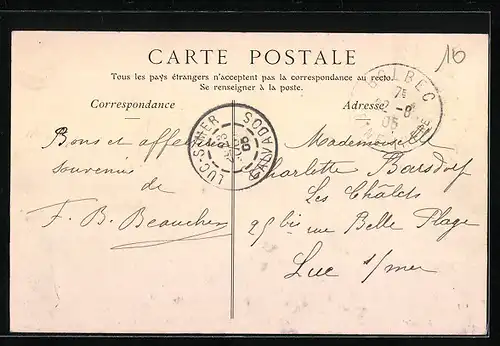 CARTE POSTALE
Tous les pays étrangers n'acceptent pas la correspondance au recto.
Se renseigner à la poste.
Correspondance
Adresse
16
BOLBEC
7E
-8
05
LUC-S-MER
CALVADOS
05
Bons et affectueux
souvenirs
de
F. B. Beauchen
Mademoiselle
Charlotte Barsdorf
Les Châlets
25 bis rue Belle Plage
Luc s/mer